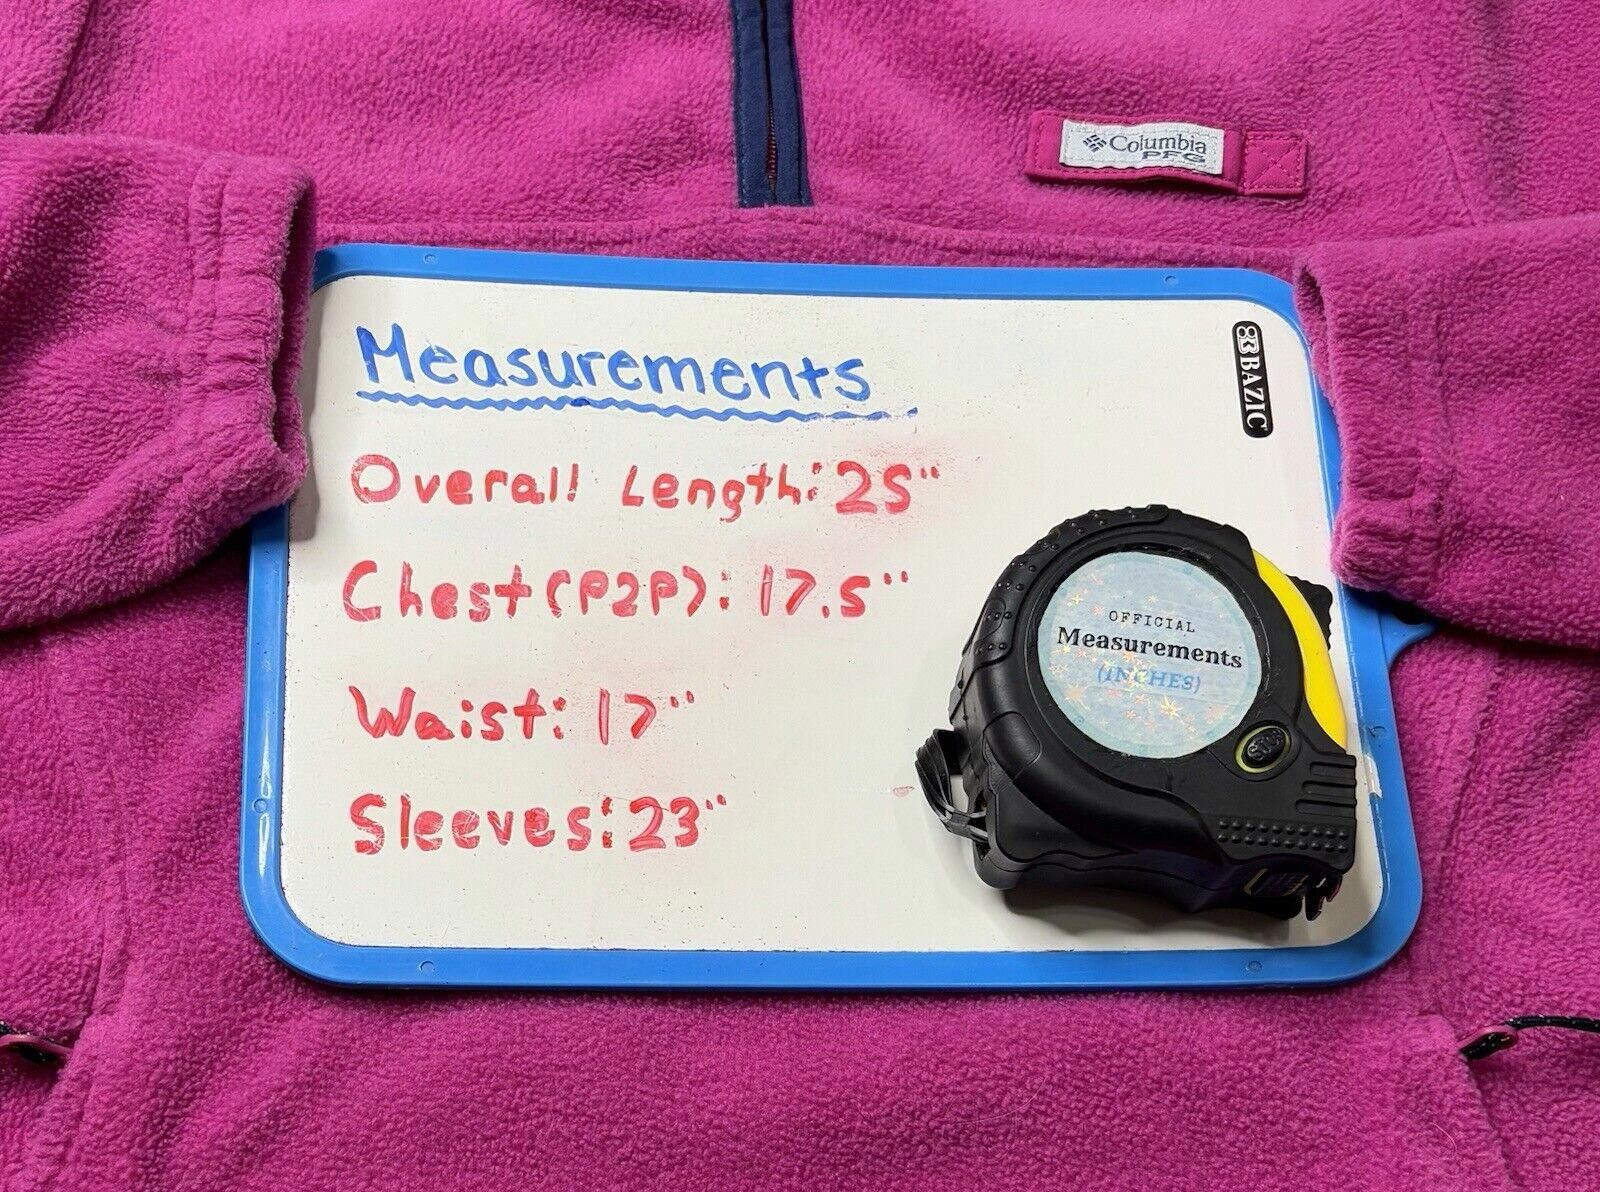 Columbia
PFG
BAZIC
Measurements
Overall Length: 25"
Chest (P2P): 17.5"
Waist: 17"
Sleeves: 23"
OFFICIAL
Measurements
(INCHES)
STOP